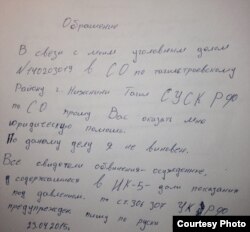 Обращение
В связи с моим уголовным делом
№ 140203019 в СО по тагилстроевскому
Району г. Нижний Тагил СУСК РФ
по СО прошу Вас оказать мне
юридическую помощь.
По данному делу я не виновен.
Все свидетели обвинения - осужденные,
содержащиеся в ИК-5 - дали показания
под давлением. по ст. 306 307 УК РФ
предупрежден пишу по руски
23.04.2015.
Courtesy Photo